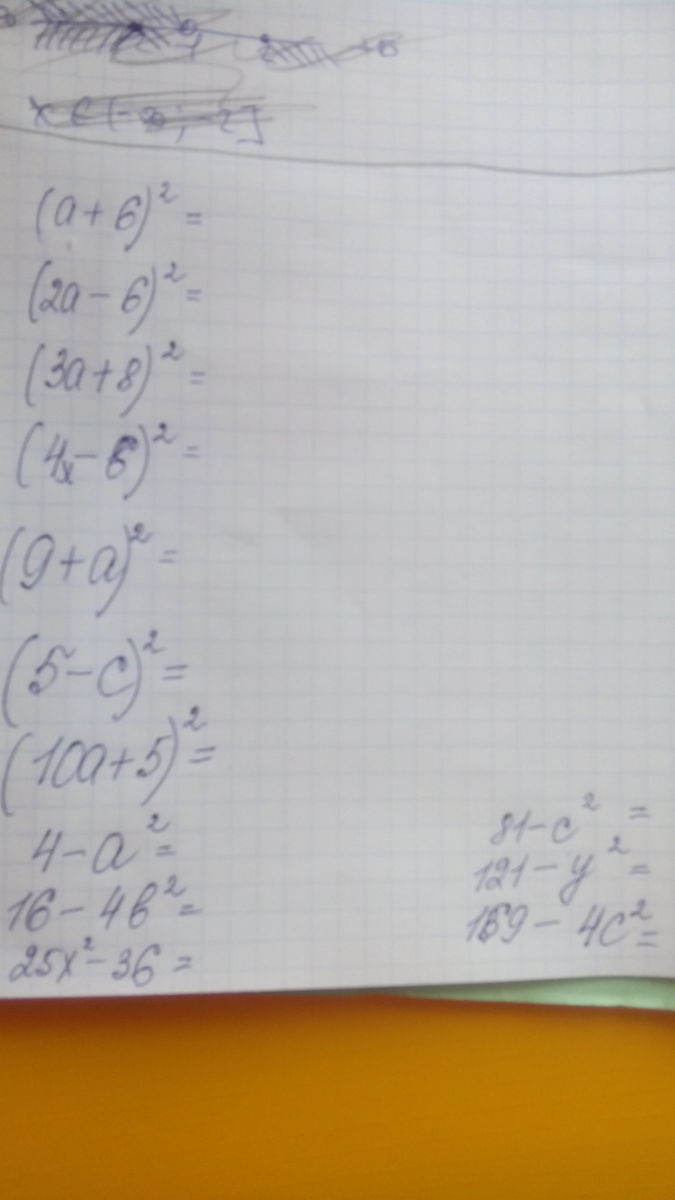 x ∈ (-∞; -2]
(a + 6)² =
(2a - 6)² =
(3a + 8)² =
(4x - 6)² =
(9 + a)² =
(5 - c)² =
(10a + 5)² =
4 - a² =
16 - 4b² =
25x² - 36 =
81 - c² =
121 - y² =
169 - 4c² =